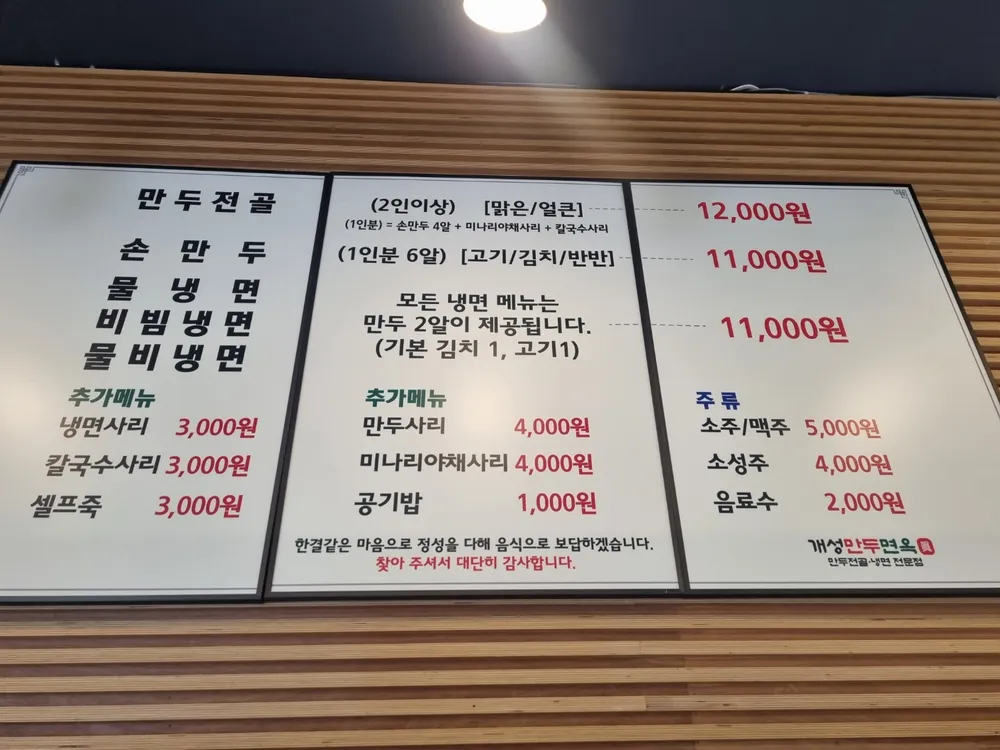 만두전골 (2인이상) [맑은/얼큰] 12,000원
(1인분) = 손만두 4알 + 미나리야채사리 + 칼국수사리
손만두 (1인분 6알) [고기/김치/반반] 11,000원
물냉면
비빔냉면
물비냉면
모든 냉면 메뉴는
만두 2알이 제공됩니다. 11,000원
(기본 김치 1, 고기1)
추가메뉴
냉면사리 3,000원
칼국수사리 3,000원
셀프죽 3,000원
추가메뉴
만두사리 4,000원
미나리야채사리 4,000원
공기밥 1,000원
한결같은 마음으로 정성을 다해 음식으로 보답하겠습니다.
찾아 주셔서 대단히 감사합니다.
주류
소주/맥주 5,000원
소성주 4,000원
음료수 2,000원
개성만두면옥
만두전골·냉면 전문점